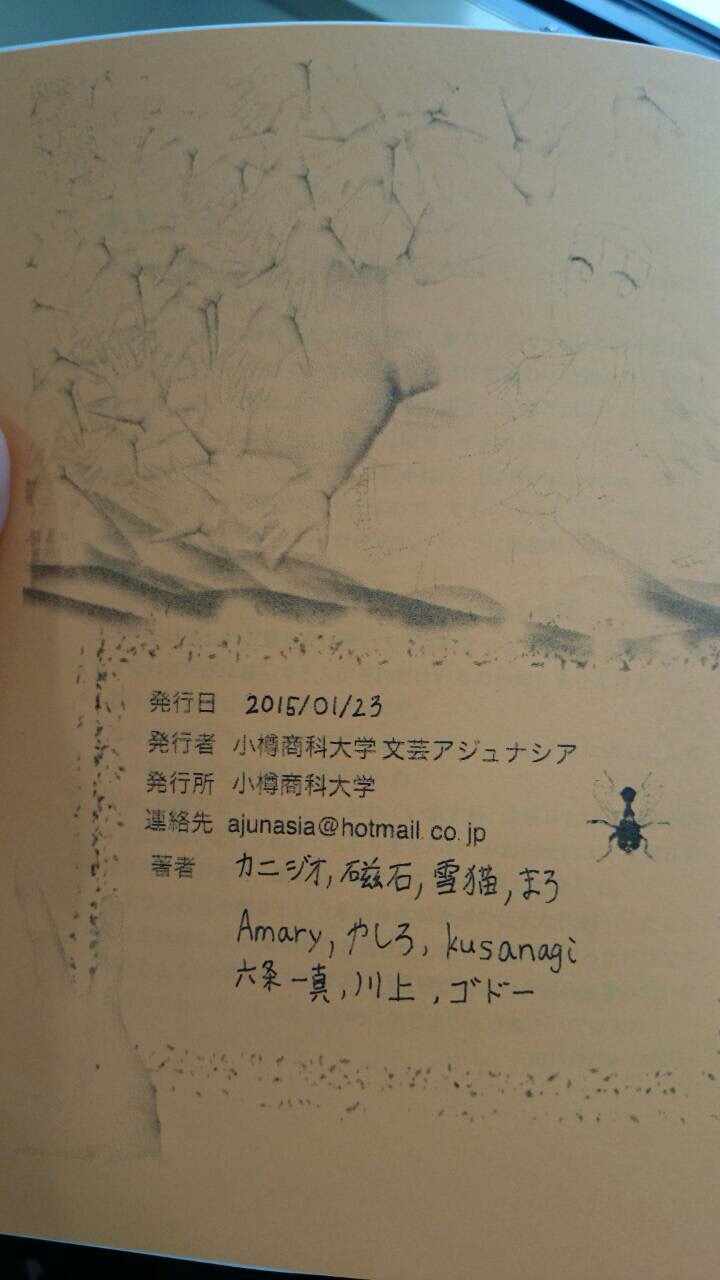 発行日 2015/01/23
発行者 小樽商科大学 文芸アジュナシア
発行所 小樽商科大学
連絡先 ajunasia@hotmail.co.jp
著者 カニジオ, 磁石, 雪猫, まろ
Amary, やしろ, kusanagi
六条一真, 川上, ゴドー